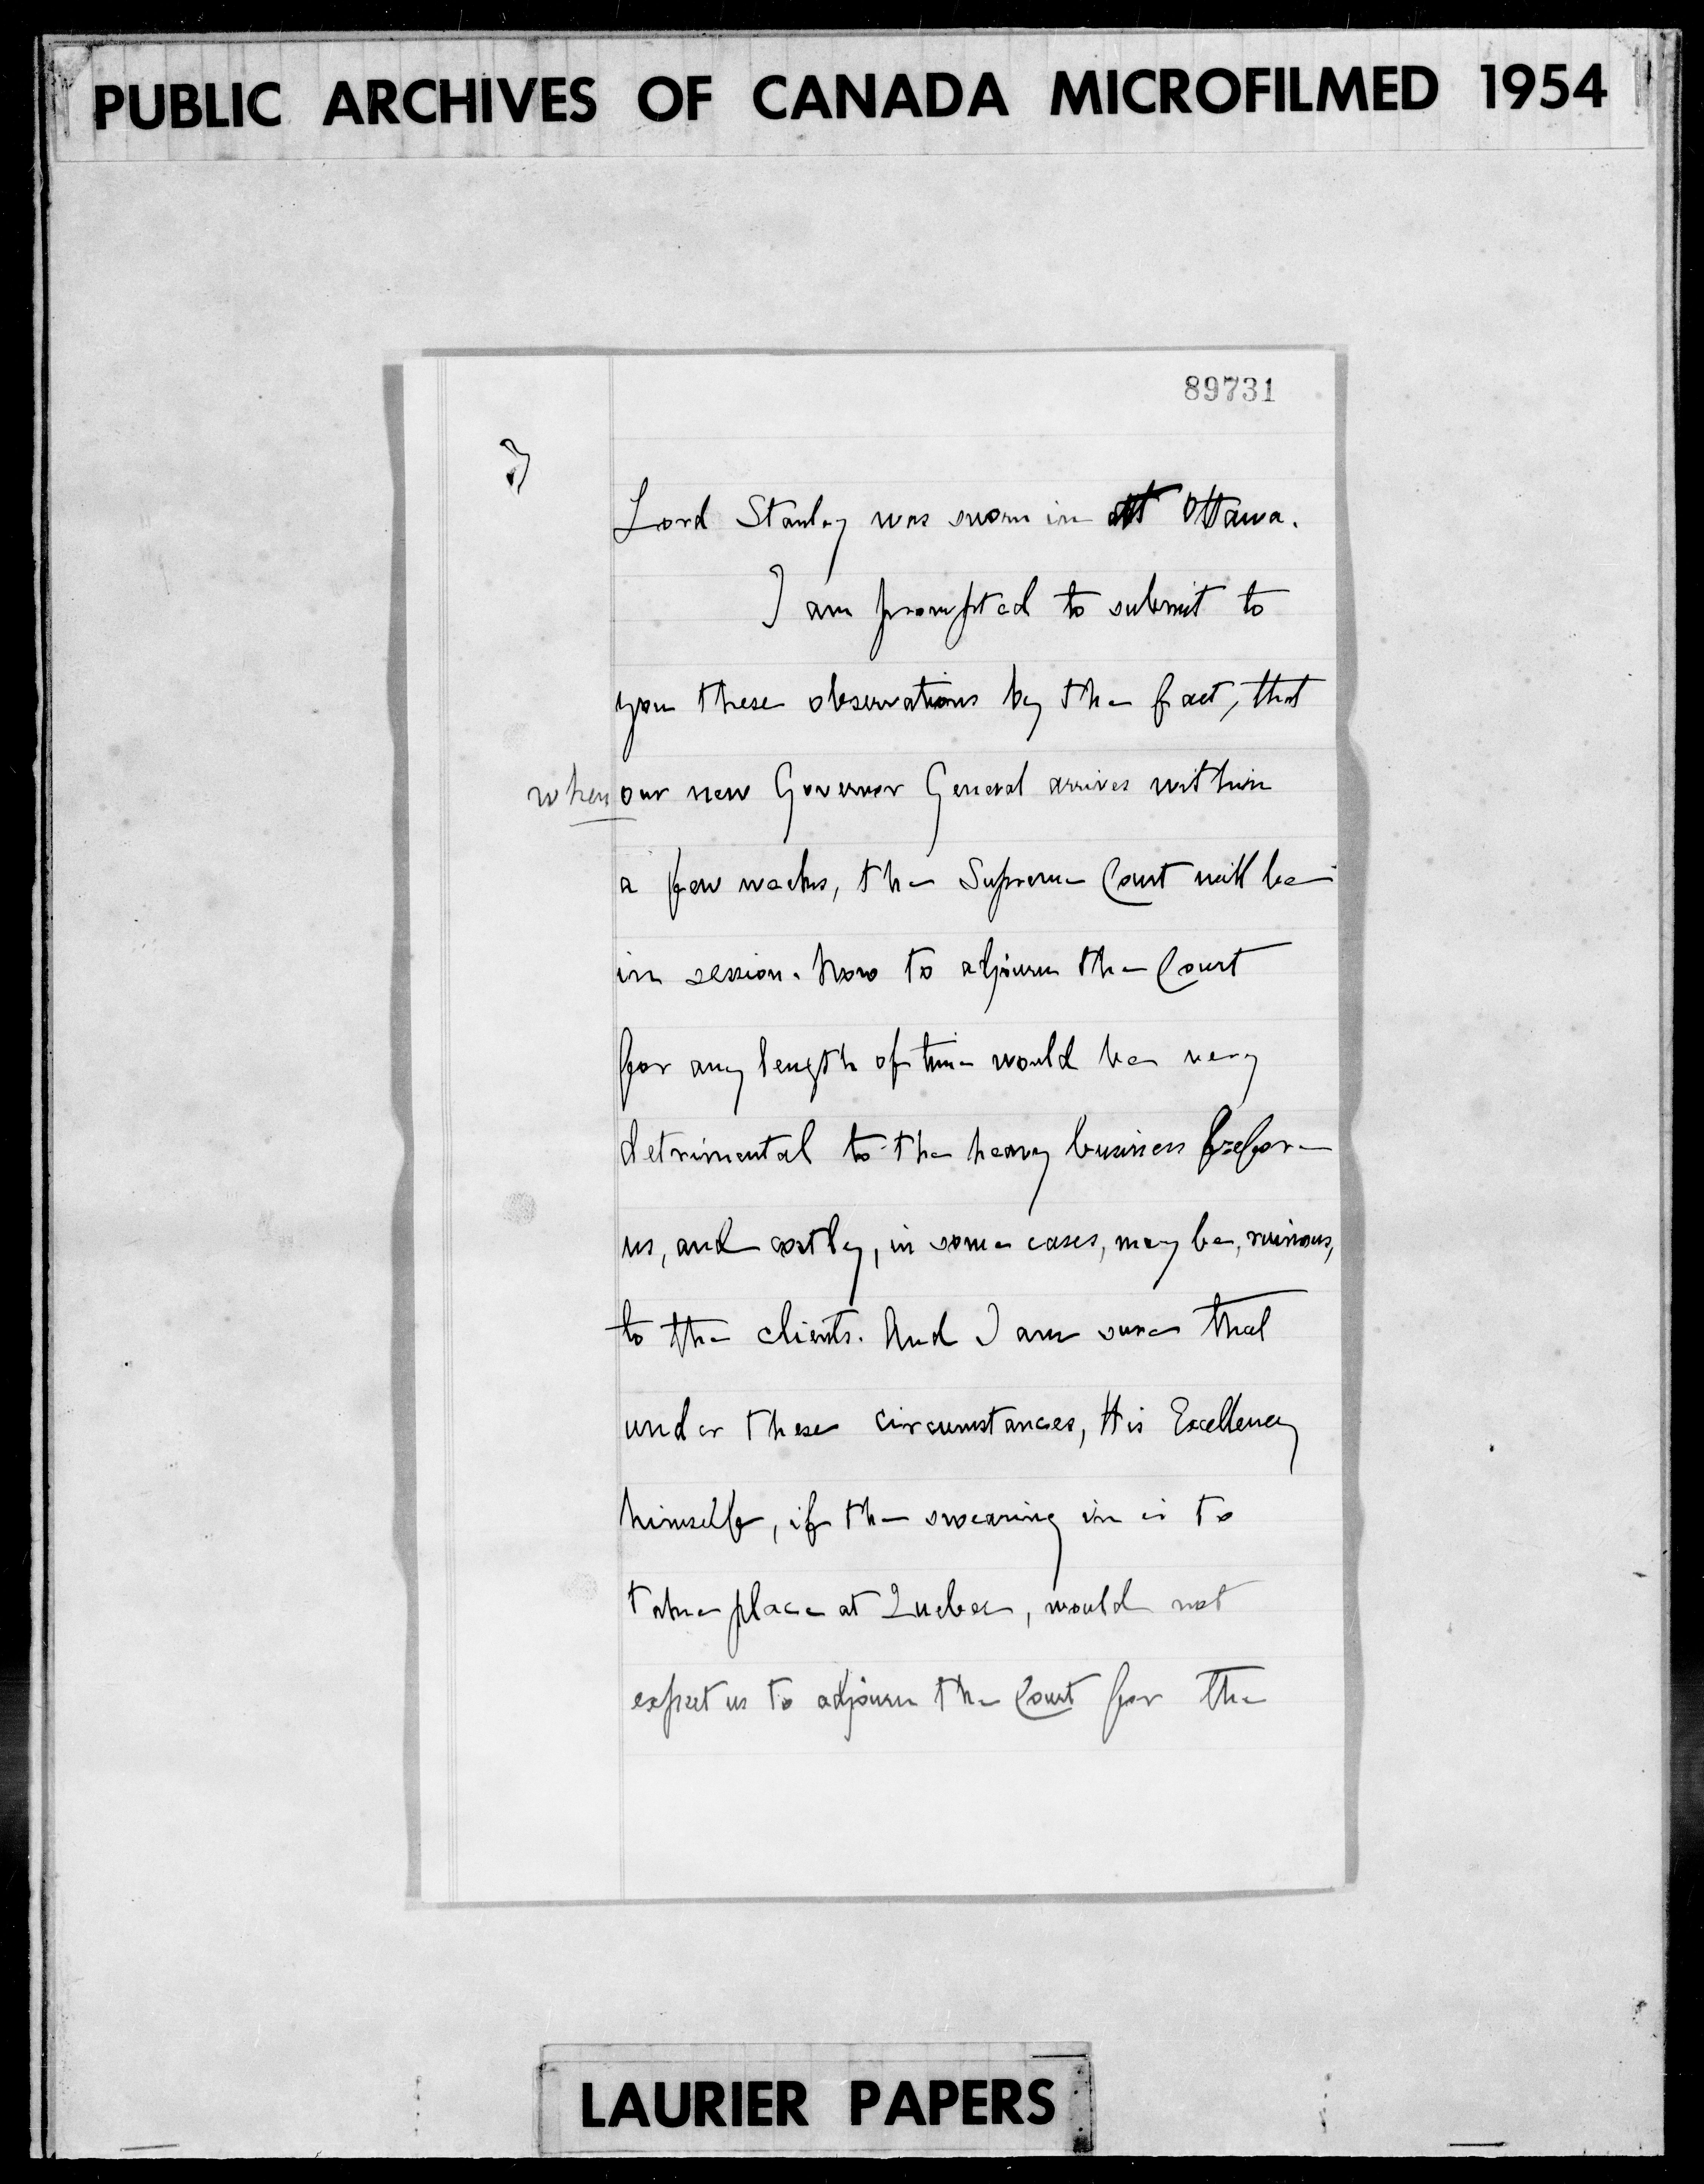 PUBLIC ARCHIVES OF CANADA MICROFILMED 1954
89731
3)
Lord Stanley was sworn in at Ottawa.
I am prompted to submit to
you these observations by the fact, that
when our new Governor General arrives within
a few weeks, the Supreme Court will be
in session. Now to adjourn the Court
for any length of time would be very
detrimental to the heavy business before
us, and costly, in some cases, may be, ruinous,
to the clients. And I am sure that
under these circumstances, His Excellency
himself, if the swearing in is to
take place at Quebec, would not
expect us to adjourn the Court for the
LAURIER PAPERS